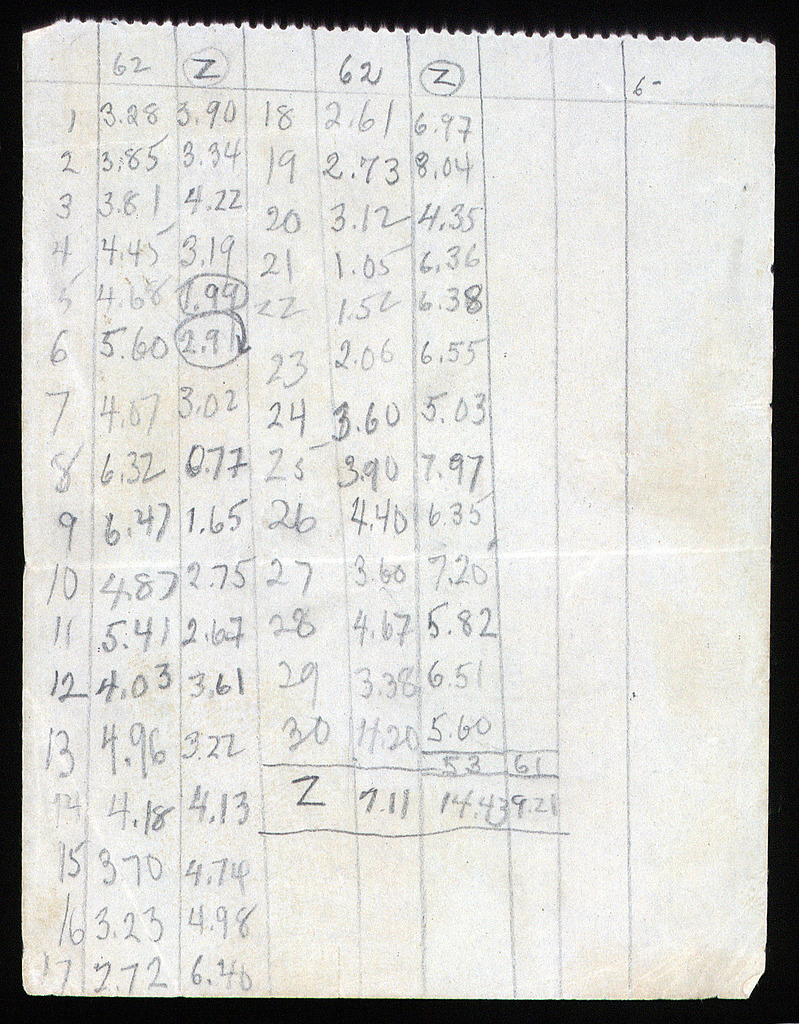 62 Z 62 Z 6-
1 3.28 3.90 18 2.61 6.97
2 3.85 3.34 19 2.73 8.04
3 3.81 4.22 20 3.12 4.35
4 4.45 3.19 21 1.05 6.36
5 4.68 1.99 22 1.52 6.38
6 5.60 2.91 23 2.06 6.55
7 4.07 3.02 24 3.60 5.03
8 6.32 0.77 25 3.90 7.97
9 6.47 1.65 26 4.40 6.35
10 4.87 2.75 27 3.60 7.20
11 5.41 2.67 28 4.67 5.82
12 4.03 3.61 29 3.38 6.51
13 4.96 3.22 30 4.20 5.60
53 61
14 4.18 4.13 Z 7.11 14.43 9.21
15 3.70 4.74
16 3.23 4.98
17 2.72 6.40